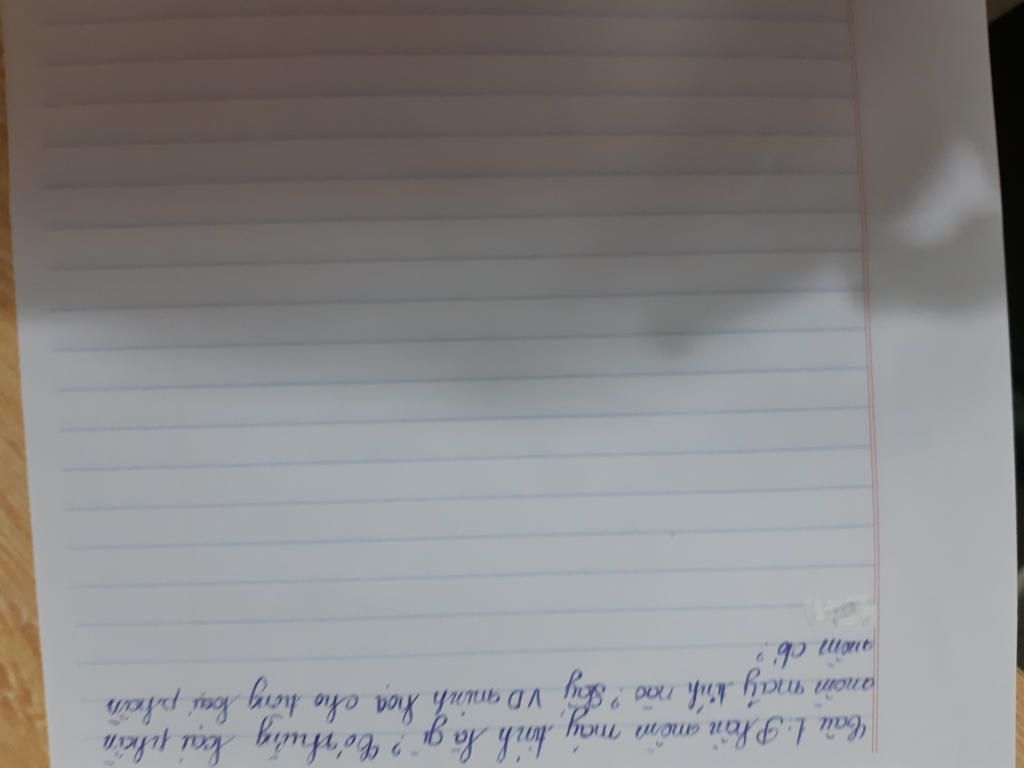 Câu 1: Phần mềm máy tính là gì? Có những loại phần
mềm máy tính nào? Lấy VD minh họa cho từng loại phần
mềm đó?